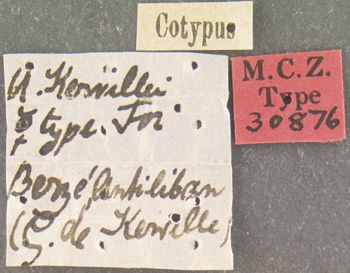 Cotypus
M.C.Z.
Type
30876
A. Kervillei
☿ type. For
Berzé Antiliban
(G. de Kerville)